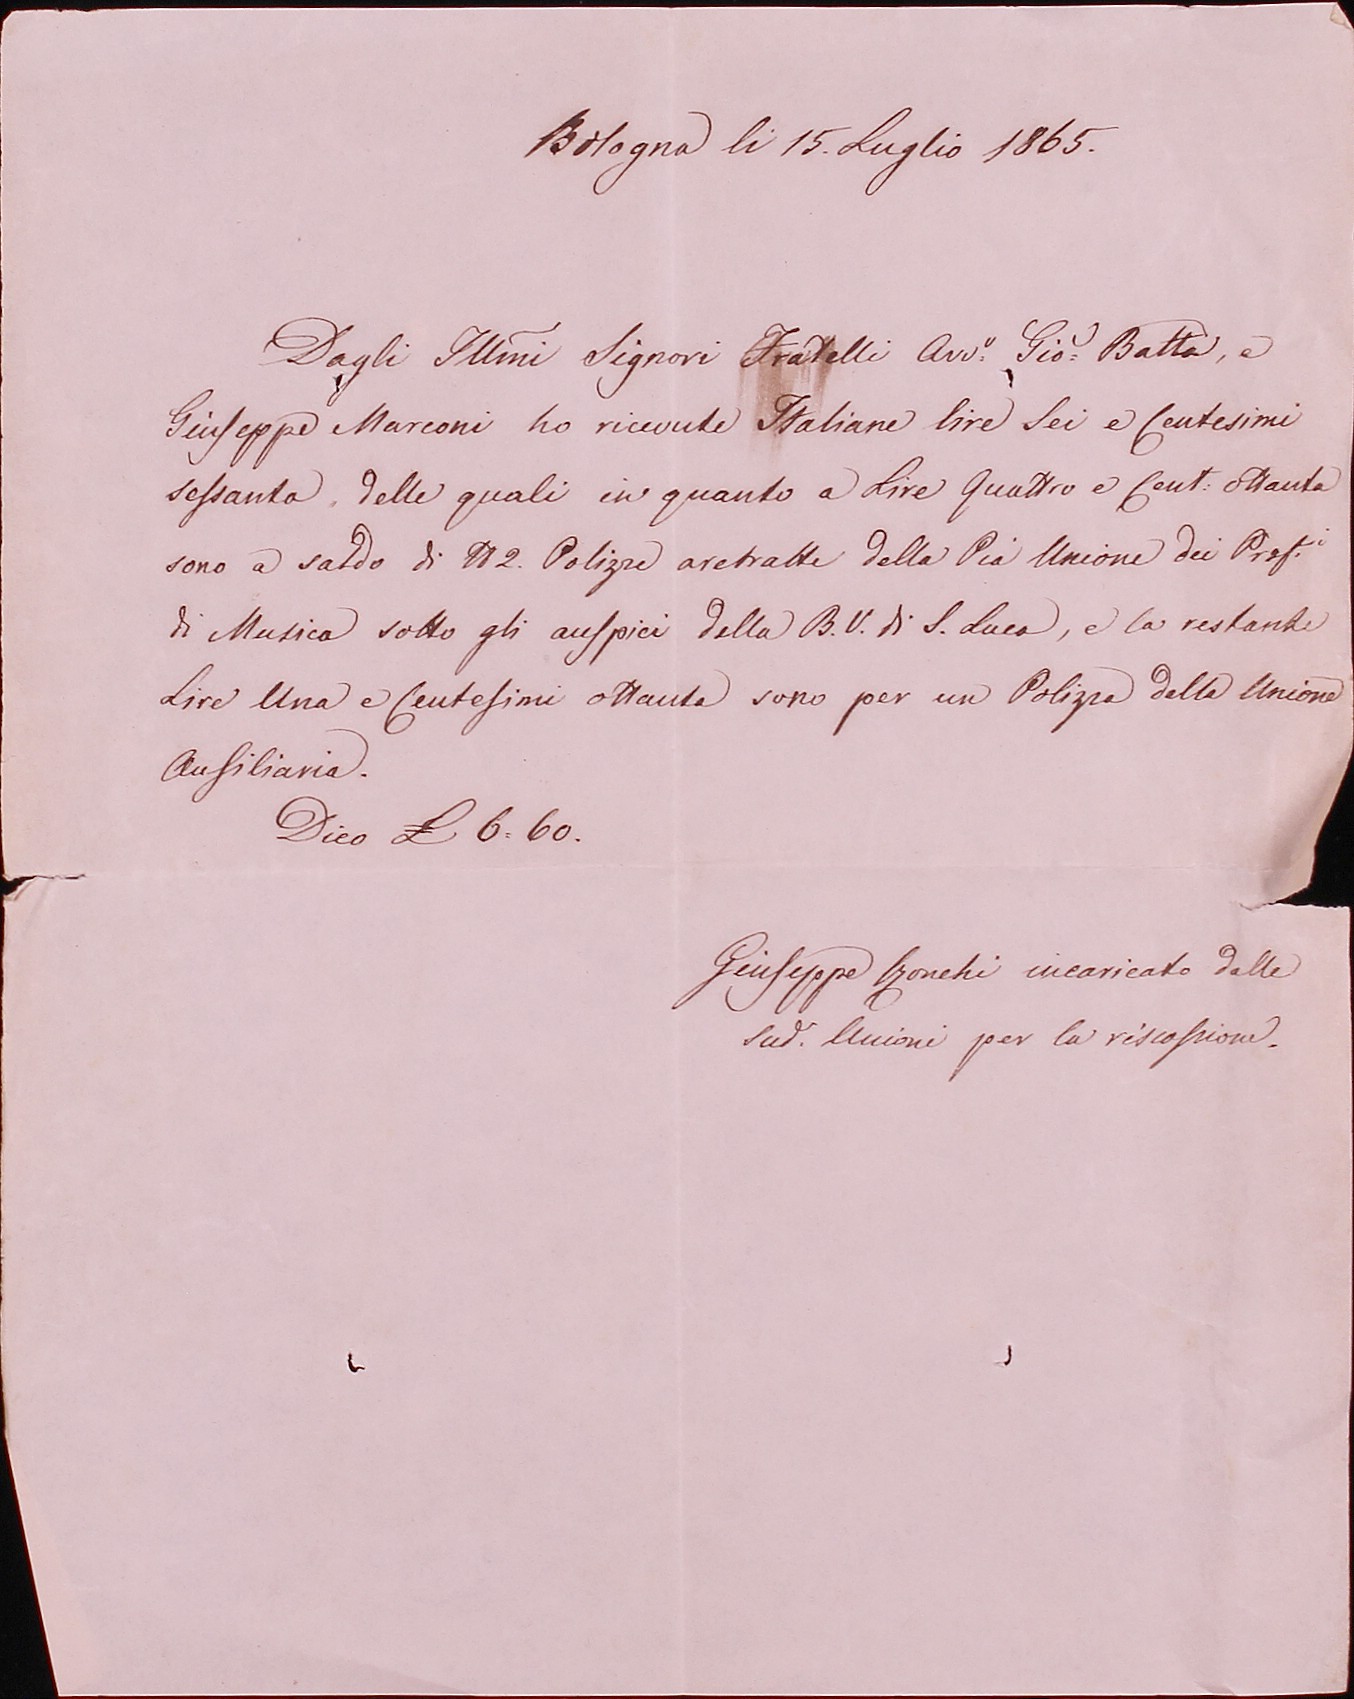 Bologna li 15. Luglio 1865.
Dagli Illmi Signori Fratelli Avv.º Gio: Batta, e
Giuseppe Marconi ho ricevute Italiane lire Sei e Centesimi
sessanta, delle quali in quanto a Lire Quattro e Cent: ottanta
sono a saldo di N 2. Polizze aretratte della Pia Unione dei Prof.i
di Musica sotto gli auspici della B. V. di S. Luca, e la restante
Lire Una e Centesimi ottanta sono per un Polizza della Unione
Ausiliaria.
Dico £ 6:60.
Giuseppe incaricato dalle
Sud. Unioni per la riscossione.